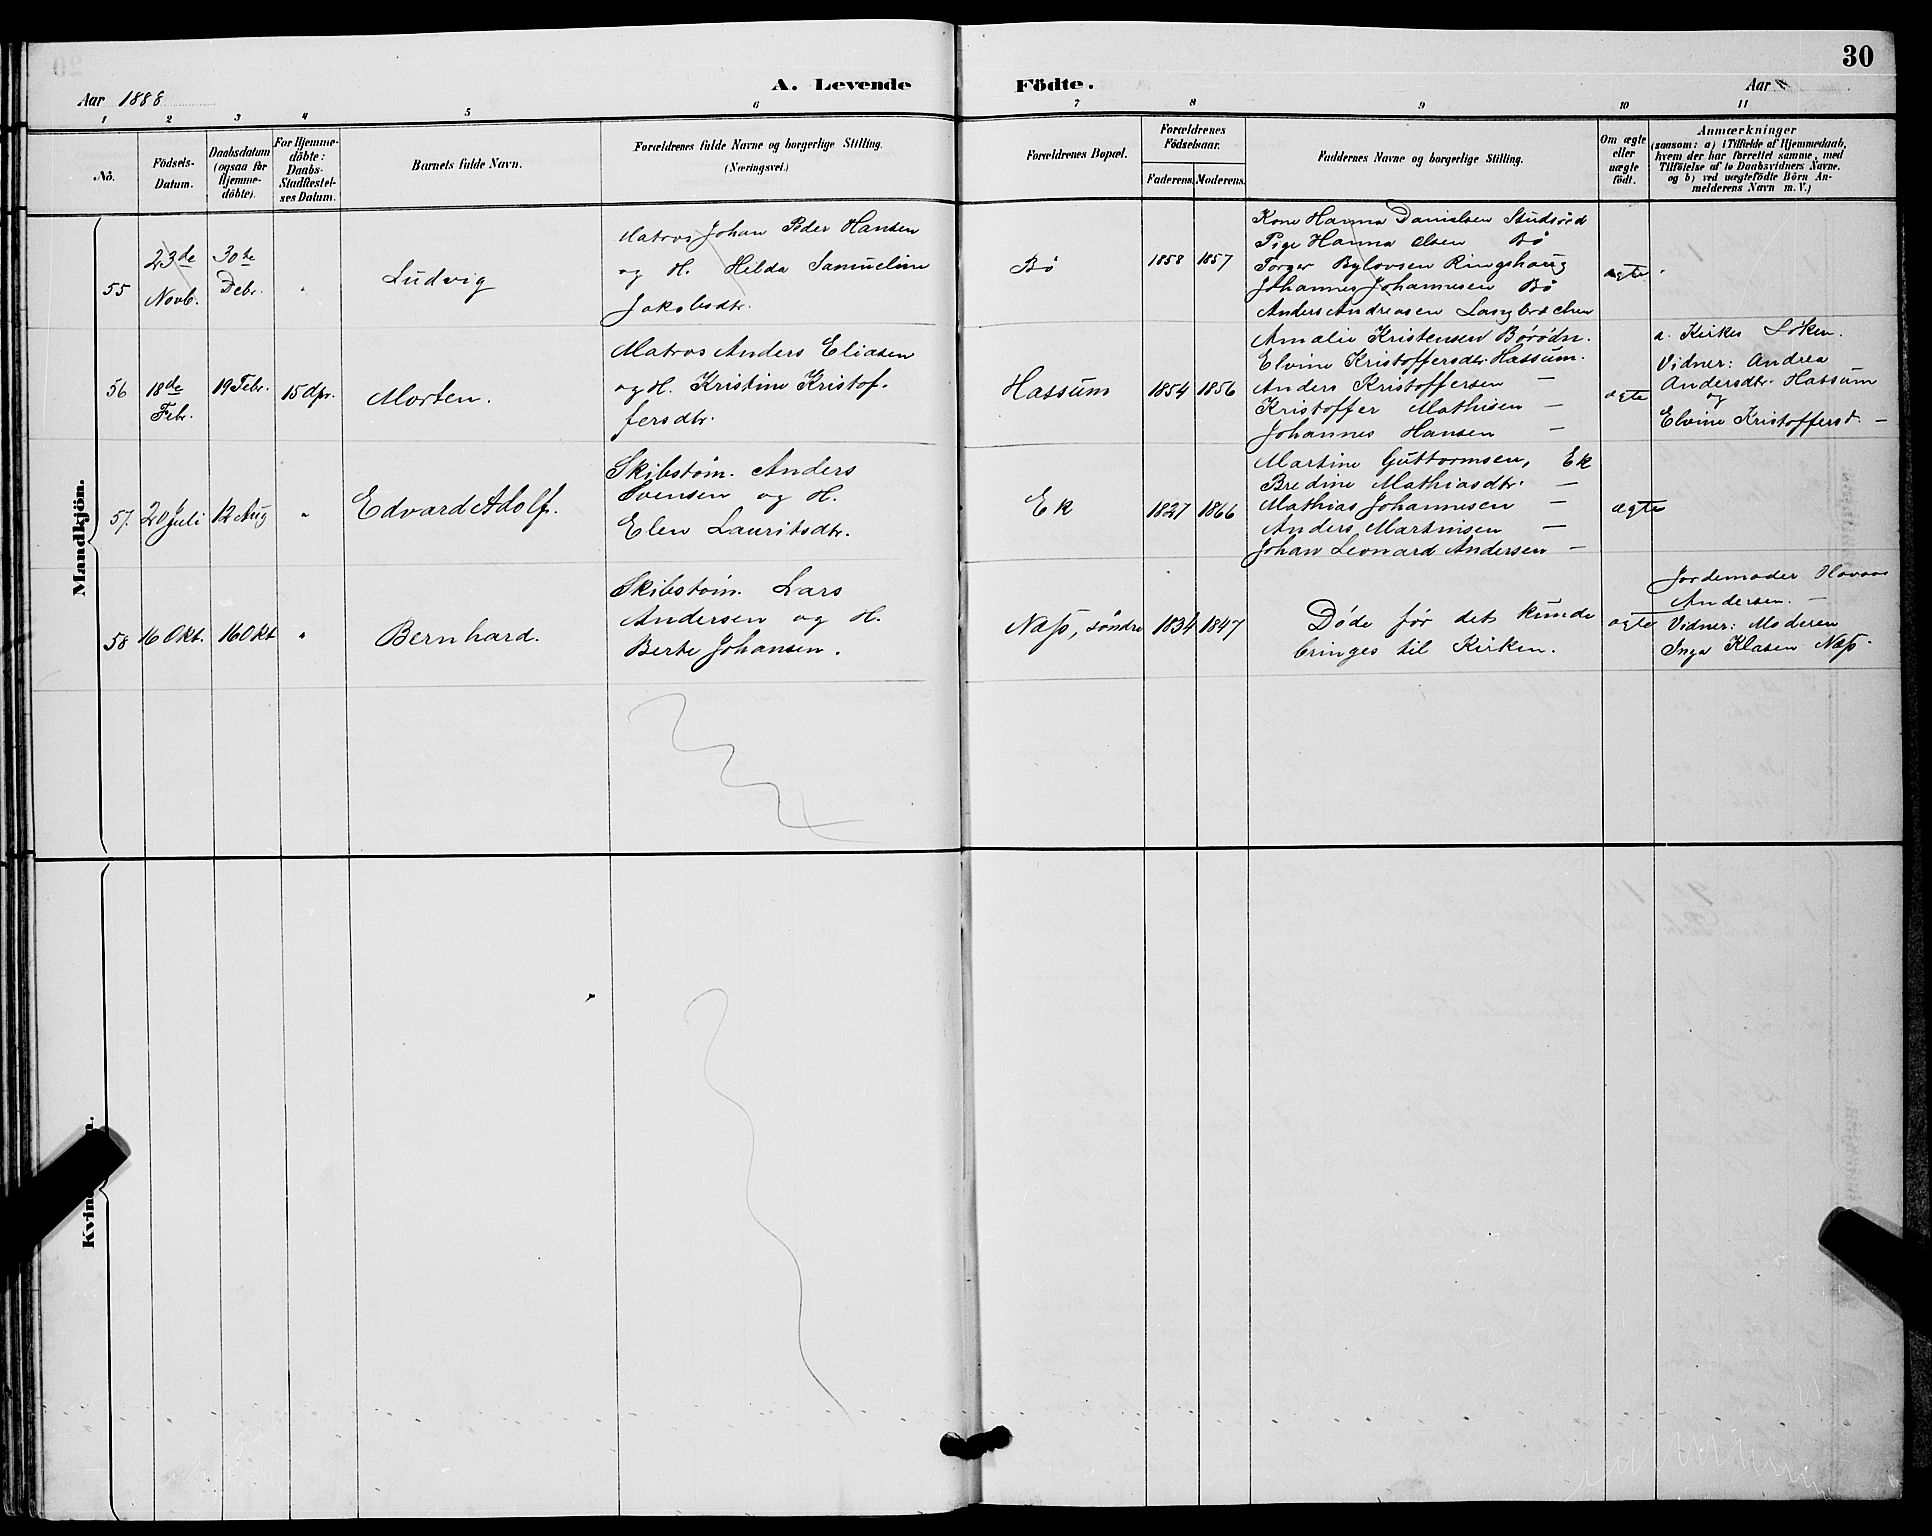 30
A. Levende Födte.
Aar 1888
Aar
1 2 3 4 5 6 7 8 9 10 11
Nô.
Födsels-
Datum.
Daabsdatum
(ogsaa for
Hjemme-
döbte).
For Hjemme-
döbte:
Daabs-
Stadfæstel-
ses Datum.
Barnets fulde Navn.
Forældrenes fulde Navne og borgerlige Stilling.
(Næringsvei.)
Forældrenes Bopæl.
Forældrenes
Födselsaar.
Faderens. Moderens.
Faddernes Navne og borgerlige Stilling.
Om ægte
eller
uægte
født.
Anmærkninger
(saasom: a) i Tilfælde af Hjemmedaab,
hvem der har forrettet samme, med
Tilföielse af to Daabsvidners Navne,
og b) ved uægtefödte Börn An-
melderens Navn m. V.)
Mandkjön.
55
23de
Novb.
30te
Debr.
"
Ludvig
Matros Johan Peder Hansen
og H. Hilda Samueline
Jakobsdtr.
Bö
1858 1857
Kone Hanna Danielsen Studsröd
Pige Hanna Olsen Bö
Torger Bylovsen Ringshaug
Johannes Johannesen Bö
Anders Andreasen
ægte
56
18de
Febr.
19 Febr.
15 Apr.
Morten.
Matros Anders Eliasen
og H. Kristine Kristof-
fersdtr.
Hassum
1854 1856
Amalie Kristensen
Elvine Kristoffersdtr Hassum.
Anders Kristoffersen —
Kristoffer Mathisen —
Johannes Hansen —
ægte
a. Kirkes Löken.
Vidner: Andrea
Andersdtr. Hassum
og
Elvine Kristoffersd. —
57.
20 Juli
12 Aug
"
Edvard Adolf.
Skibstöm. Anders
Svensen og H.
Elen Lauritsdtr.
Ek
1827 1866
Martine Guttormsen, Ek
Bredine Mathiasdtr. —
Mathias Johannesen —
Anders Martinsen —
Johan Leonard Andersen —
ægte
58
16 Okt.
16 Okt
"
Bernhard.
Skibstöm. Lars
Andersen og H.
Berte Johansen.
Næss, söndre
1834 1847
Döde för det kunde
bringes til Kirken.
ægte
Jordemoder
Andersen. —
Vidner: Moderen
Inga Klasen Næss.
Kvin
n.